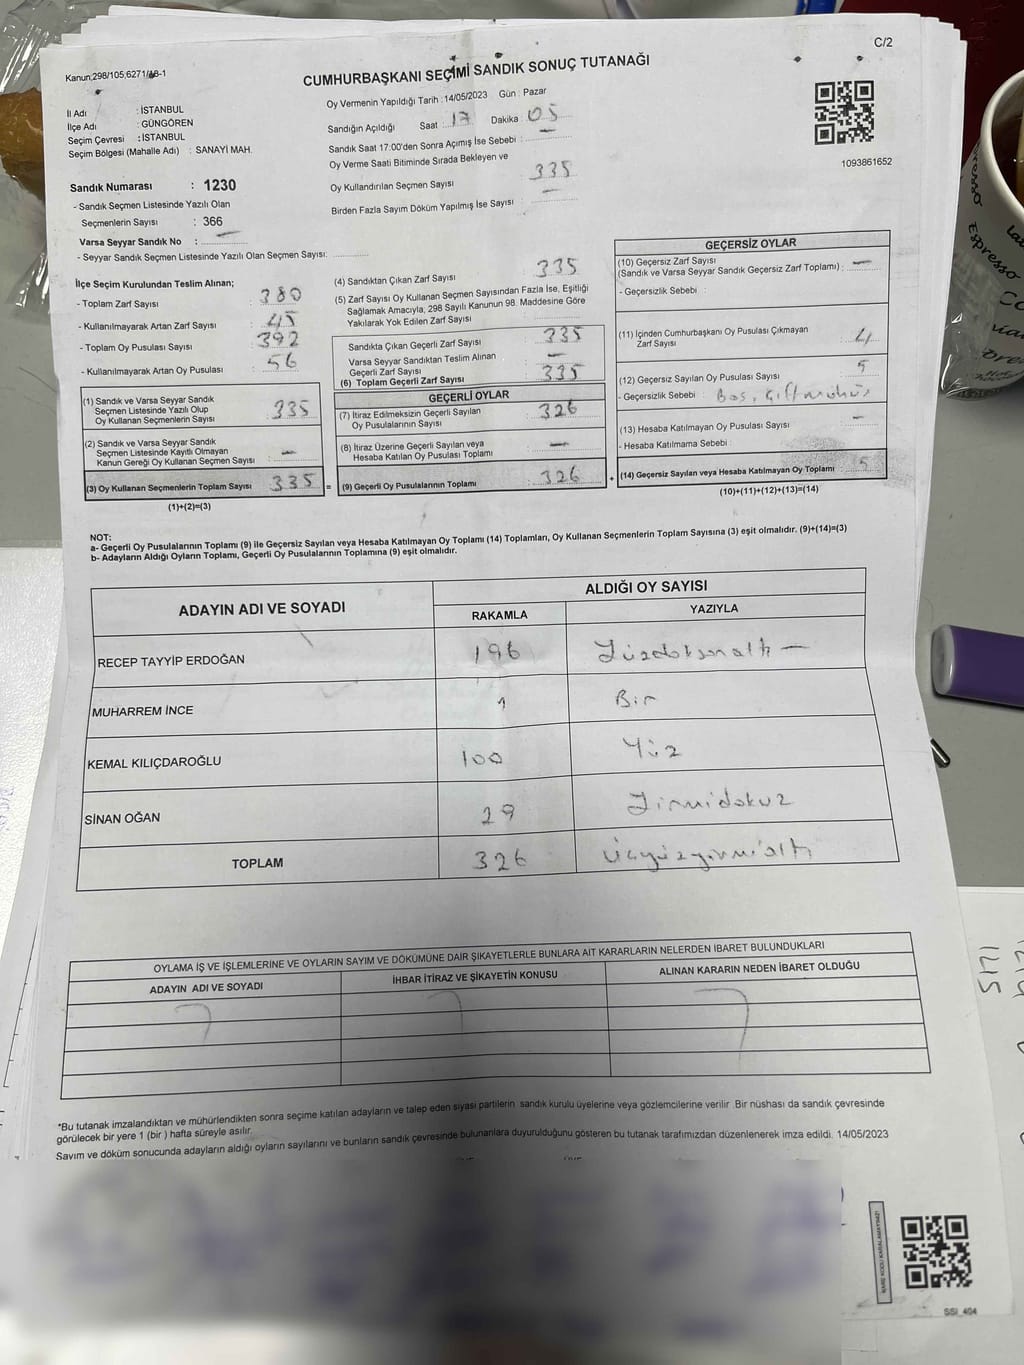 C/2
Kanun;298/105;6271/4B-1
CUMHURBAŞKANI SEÇİMİ SANDIK SONUÇ TUTANAĞI
İl Adı : İSTANBUL
İlçe Adı : GÜNGÖREN
Seçim Çevresi : İSTANBUL
Seçim Bölgesi (Mahalle Adı) : SANAYİ MAH.
Oy Vermenin Yapıldığı Tarih : 14/05/2023 Gün : Pazar
Sandığın Açıldığı Saat : 17 Dakika : 05
Sandık Saat 17:00'den Sonra Açımış İse Sebebi : —
Oy Verme Saati Bitiminde Sırada Bekleyen ve
Oy Kullandırılan Seçmen Sayısı 335
Birden Fazla Sayım Döküm Yapılmış İse Sayısı : —
1093861652
Sandık Numarası : 1230
- Sandık Seçmen Listesinde Yazılı Olan
Seçmenlerin Sayısı : 366
Varsa Seyyar Sandık No : —
- Seyyar Sandık Seçmen Listesinde Yazılı Olan Seçmen Sayısı:
İlçe Seçim Kurulundan Teslim Alınan;
- Toplam Zarf Sayısı : 380
- Kullanılmayarak Artan Zarf Sayısı : 45
- Toplam Oy Pusulası Sayısı : 392
- Kullanılmayarak Artan Oy Pusulası : 56
(1) Sandık ve Varsa Seyyar Sandık
Seçmen Listesinde Yazılı Olup
Oy Kullanan Seçmenlerin Sayısı : 335
(2) Sandık ve Varsa Seyyar Sandık
Seçmen Listesinde Kayıtlı Olmayan
Kanun Gereği Oy Kullanan Seçmen Sayısı : —
(3) Oy Kullanan Seçmenlerin Toplam Sayısı : 335 =
(1)+(2)=(3)
(4) Sandıktan Çıkan Zarf Sayısı 335
(5) Zarf Sayısı Oy Kullanan Seçmen Sayısından Fazla İse, Eşitliği
Sağlamak Amacıyla, 298 Sayılı Kanunun 98. Maddesine Göre
Yakılarak Yok Edilen Zarf Sayısı :
Sandıkta Çıkan Geçerli Zarf Sayısı : 335
Varsa Seyyar Sandıktan Teslim Alınan
Geçerli Zarf Sayısı : —
(6) Toplam Geçerli Zarf Sayısı 335
GEÇERLİ OYLAR
(7) İtiraz Edilmeksizin Geçerli Sayılan
Oy Pusulalarının Sayısı : 326
(8) İtiraz Üzerine Geçerli Sayılan veya
Hesaba Katılan Oy Pusulası Toplamı : —
(9) Geçerli Oy Pusulalarının Toplamı : 326 +
GEÇERSİZ OYLAR
(10) Geçersiz Zarf Sayısı
(Sandık ve Varsa Seyyar Sandık Geçersiz Zarf Toplamı) : —
- Geçersizlik Sebebi :
(11) İçinden Cumhurbaşkanı Oy Pusulası Çıkmayan
Zarf Sayısı : 4
(12) Geçersiz Sayılan Oy Pusulası Sayısı : 5
- Geçersizlik Sebebi : Boş, Çift mühür
(13) Hesaba Katılmayan Oy Pusulası Sayısı : —
- Hesaba Katılmama Sebebi :
(14) Geçersiz Sayılan veya Hesaba Katılmayan Oy Toplamı : 5
(10)+(11)+(12)+(13)=(14)
NOT:
a- Geçerli Oy Pusulalarının Toplamı (9) ile Geçersiz Sayılan veya Hesaba Katılmayan Oy Toplamı (14) Toplamları, Oy Kullanan Seçmenlerin Toplam Sayısına (3) eşit olmalıdır. (9)+(14)=(3)
b- Adayların Aldığı Oyların Toplamı, Geçerli Oy Pusulalarının Toplamına (9) eşit olmalıdır.
ADAYIN ADI VE SOYADI ALDIĞI OY SAYISI
RAKAMLA YAZIYLA
RECEP TAYYİP ERDOĞAN 196 Yüzdoksanaltı —
MUHARREM İNCE 1 Bir
KEMAL KILIÇDAROĞLU 100 Yüz
SİNAN OĞAN 29 Yirmidokuz
TOPLAM 326 üçyüzyirmialtı
OYLAMA İŞ VE İŞLEMLERİNE VE OYLARIN SAYIM VE DÖKÜMÜNE DAİR ŞİKAYETLERLE BUNLARA AİT KARARLARIN NELERDEN İBARET BULUNDUKLARI
ADAYIN ADI VE SOYADI İHBAR İTİRAZ VE ŞİKAYETİN KONUSU ALINAN KARARIN NEDEN İBARET OLDUĞU
*Bu tutanak imzalandıktan ve mühürlendikten sonra seçime katılan adayların ve talep eden siyasi partilerin sandık kurulu üyelerine veya gözlemcilerine verilir .Bir nüshası da sandık çevresinde
görülecek bir yere 1 (bir ) hafta süreyle asılır.
Sayım ve döküm sonucunda adayların aldığı oyların sayılarını ve bunların sandık çevresinde bulunanlara duyurulduğunu gösteren bu tutanak tarafımızdan düzenlenerek imza edildi. 14/05/2023
SSI_404